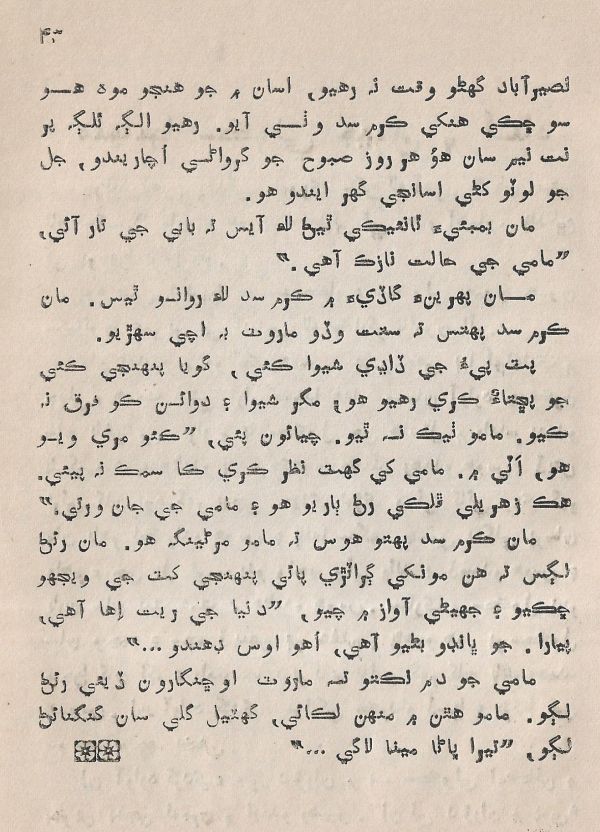 ۴۳
نصيرآباد گهڻو وقت نہ رهيو، اسان ۾ جو هنجو موه هـــو
سو ڇڪي هنکي ڪرم سد وٺـي آيو. رهيو الڳ ٿلڳ پر
نت نيم سان هوُ هر روز صبوح جو گرواڻـي اُچاريندو، جل
جو لوٽو کڻي اسانجي گهر ايندو هو.
مان بمبئيءَ ٿانئيڪي ٿيڻ لاءِ آيس تہ بابي جي تار آئي،
”مامي جي حالت نازڪ آهي.“
مــان پهرينءَ گاڏيءَ ۾ ڪرم سد لاءِ روانــو ٿيس. مان
ڪرم سد پهتس تہ سنت وڏو ماروت بہ اچي سهڙيو.
پٽ پيءُ جي ڏاڍي شيوا ڪئي، گويا پنهنجي ڪئي
جو پڇتاءُ ڪري رهيو هو، مگر شيوا ۽ دوائــن ڪو فرق نہ
ڪيو. مامو ٺيڪ نــہ ٿيو. چيائون پئي، ”ڪٿو مري ويــو
هو، اَٽي ۾. مامي کي گهٽ نظر ڪري ڪا سمڪ نہ پيئي.
هڪ زهريلي ڦلڪي رڻ ٻاريو هو ۽ مامي جي جان ورتي.“
مان ڪرم سد پهتو هوس تہ مامو مرڻينگ هو. مان رئڻ
لڳس تہ هن مونکي ڳراٽڙي پائي پنهنجي کٽ جي ويجهو
ڇڪيو ۽ جهيڻي آواز ۾ چيو، ”دنيا جي ريت اِها آهي،
پيارا. جو ڀانڊو بڻيو آهي، اُهو اوس ڊهندو ...“
مامي جو دم نڪتو تــہ ماروت اوڇنگارون ڏيئي رئڻ
لڳو. مامو هٿن ۾ منهن لڪائي، گهٽيل گلي سان گنگنائڻ
لڳو، ”تيرا ڀاڻا ميٺا لاگي ...“